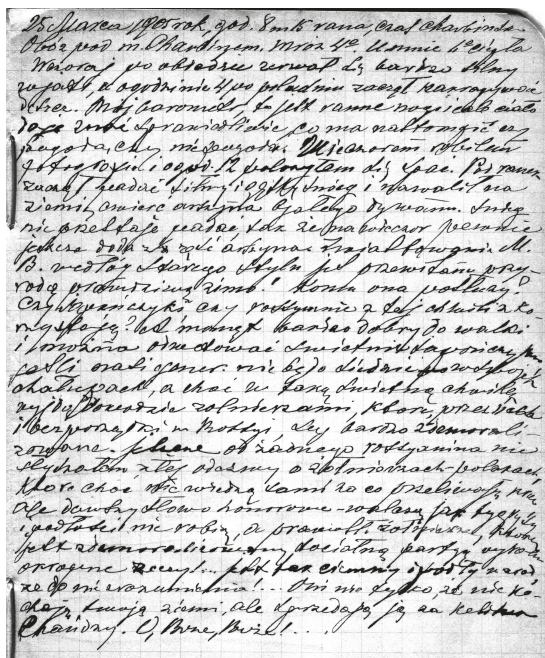 25 Marca 1905 rok, god. 8 m 15 rana, czas Charbinski
Oboz pod m. Charbinem. Mróz 4°. U mnie 6° ciepla
Wczoraj po obiedzie zerwał się bardzo silny
wiatr, a o godzinie 4 po południu zaczął nakrapywać
deszcz. Mój barometr to jest ranne nogi i całe ciało
daje znać sprawiedliwie, co ma nastompić czy
pogoda, czy nie pogoda. Wieczorem robiłem
fotografie i o god. 12 położyłem się spać. Pod ranem
zaczął padać silny i gęsty śnieg i nawalił na
ziemię ćwierć arszyna białego dywanu. Śnieg
nie przestaje padać tak że na wieczor pewnie
jeszcze doda
B. według starego stylu przy-
rodę prawdziwą zimą! Komu ona posłuży?
Czy Japończyki czy rossyanie z tej chwili sko-
rzystają? A moment bardzo dobry do walki
i można
jeśli nasi gener. nie będą siedzieć po swoich
chałupach, a choć w taką świetną chwilę
wyjdą dowodzić żołnierzami, które przez
i bezporządki w Rossyi, są bardzo zdemorali-
zowane. od żadnego rossyanina nie
słyszałem złej odezwy o żołnierzach polakach,
które choć nie wiedzą sami za co przelewają krew
ale dawszy słowo honorowe walczą jak tygrysy
i podłości nie robią, a prawosł. żołnierze, które
jest zdemoralizowany socialną partyą wyrabia
okropne rzeczy!... jest tak ciemny i podły narod
że do nie zrozumienia!... Oni nie tylko że nie ko-
chają swoją ziemi, ale sprzedają ją za kieliszek
Chandzy. O, Boże, Boże!...